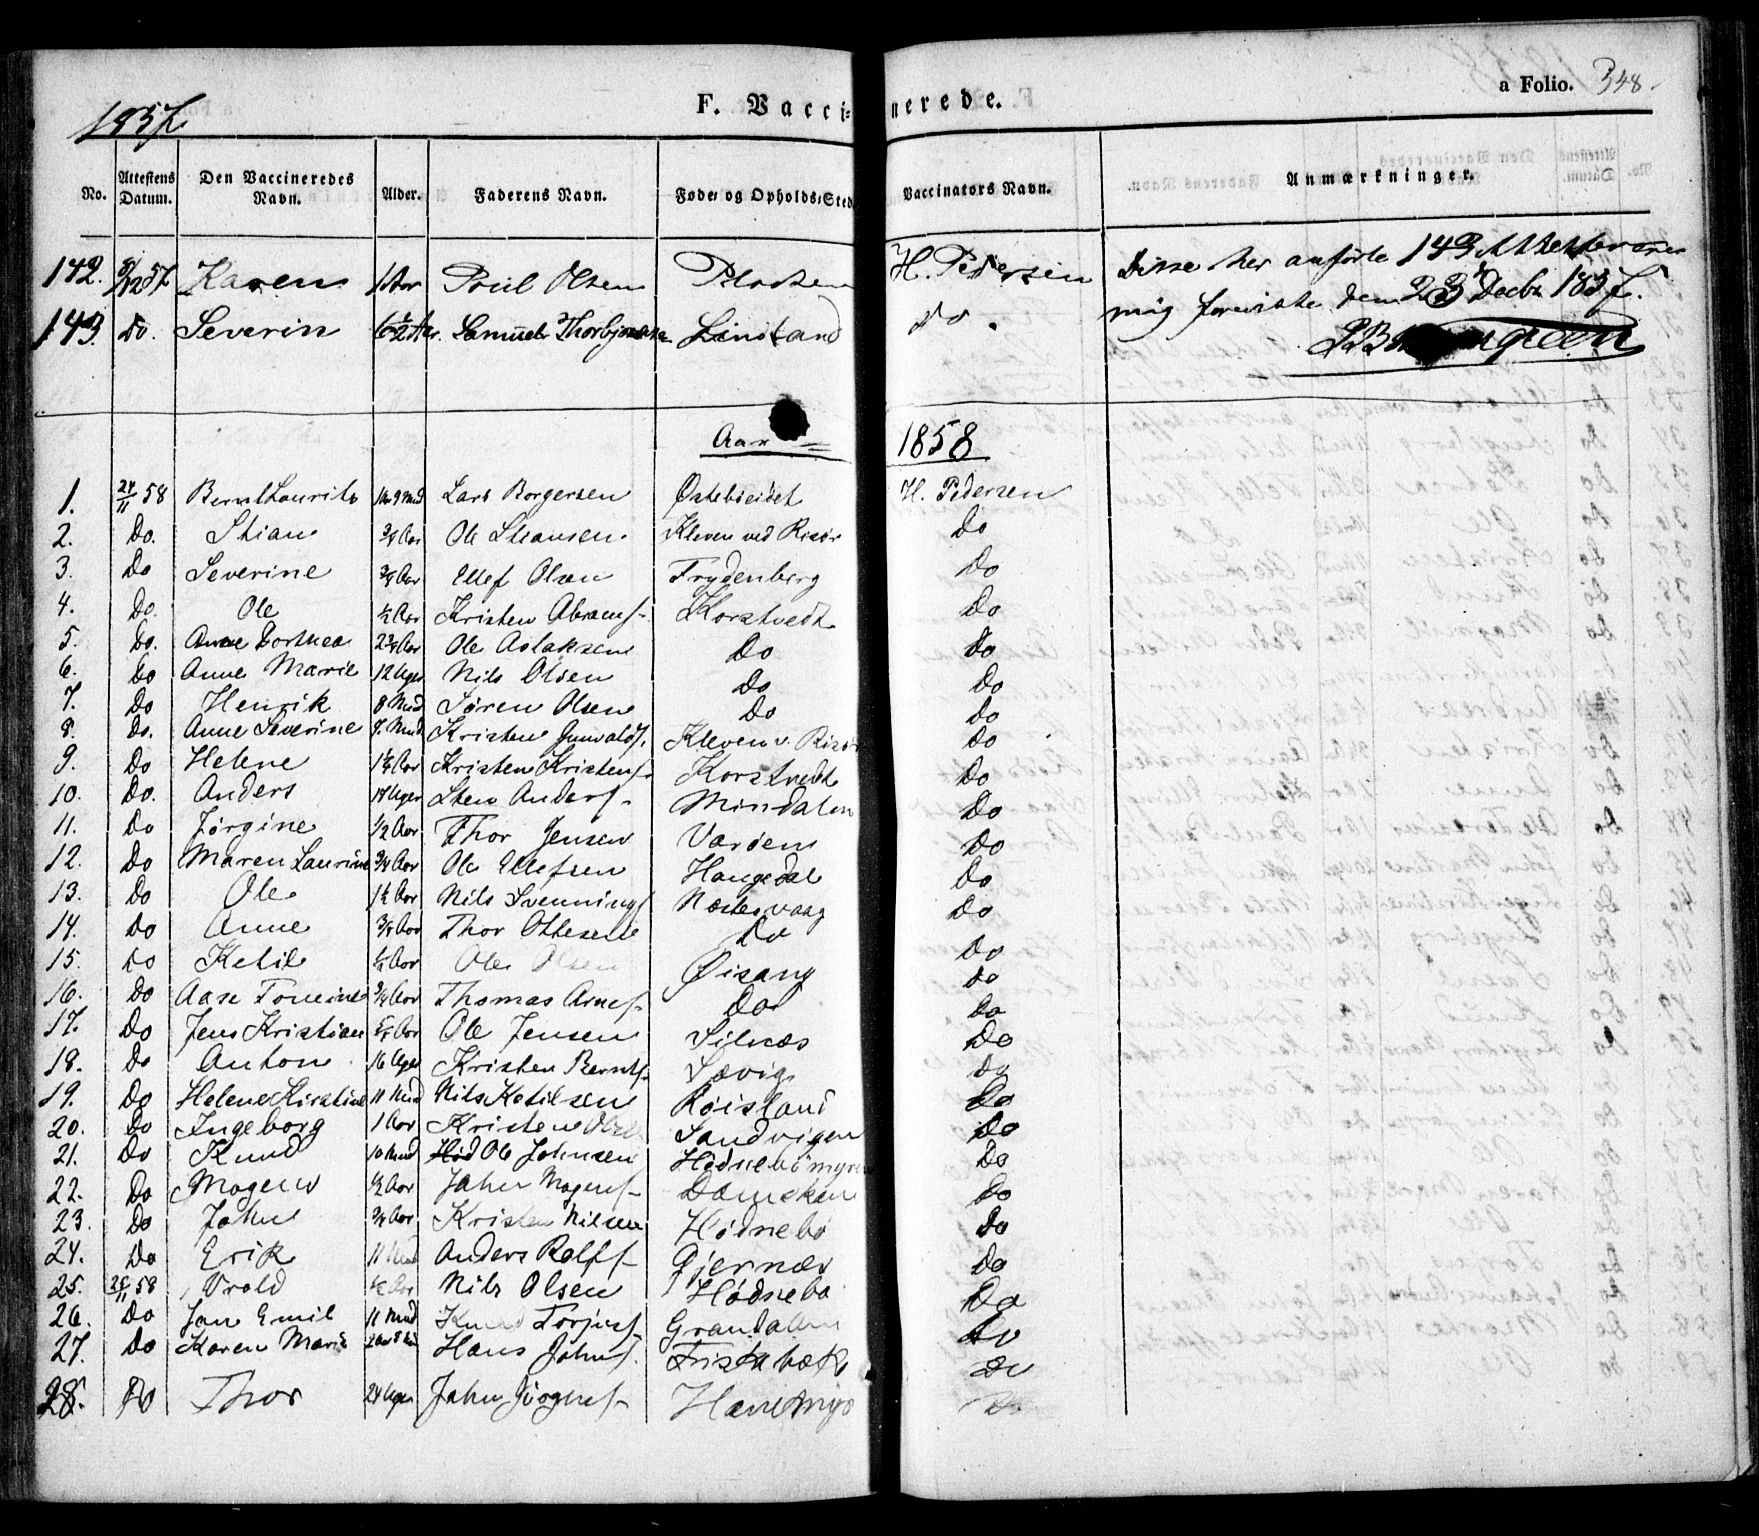 1857.
F. Vaccinerede.
a Folio. 348.
No. Attestens Datum. Den Vaccineredes Navn. Alder. Faderens Navn. Føde- og Opholds-Sted Vaccinators Navn. Anmærkninger.
142. 5/12 57 Karen 1 Aar Poul Olsen H. Pedersen Disse her anførte 143 Attester ere
143. Do. Severin 6 1/2 Aar. Samuel Thorbjørnsen Lindland do. mig foreviste den 23 Decbr 1857.
Aar 1858
1. 24/11 58 Bernt Laurits 1 Aar 9 Md Lars Borgersen Østebøeidet H. Pedersen
2. Do. Stian 3/4 Aar Ole Stiansen Kleven ved Risør Do
3. Do Severine 3/4 Aar Ellef Olsen Frydenberg Do
4. Do. Ole 1/2 Aar Kristen Abrams. Korstvedt Do
5. Do. Anne Dorthea 2 3/4 Aar Ole Aslaksen Do Do
6. Do Anne Marie 12 Uger Nils Olsen Do Do
7. Do Henrik 8 Mnd Søren Olsen Do Do
8. Do. Anne Severine 7. Mnd Kristen Gunvalds. Kleven v. Risør Do
9. Do Helene 1 1/4 Aar Kristen Kristens. Korstvedt Do
10. Do. Anders 14 Uger Sten Anders. Mindalen Do
11. Do Jørgine 1/2 Aar Thor Jensen Varøen Do
12. Do Maren Laurine 3/4 Aar Ole Ellefsen Haugedal Do
13. Do Ole 1 1/2 Aar Nils Svennings. Næslesvaag Do
14. Do Anne 3/4 Aar Thor Ottesen Do Do
15. Do Ketil 1/2 Aar Ole Olsen Øisang Do
16. Do Aase 3/4 Aar Thomas Arnes. Do Do
17. Do Jens Kristian Aar Ole Jensen Silnæs Do
18. Do Anton 16 Uger Kristen Bernts. Sævig Do
19. Do Helene Kirstine 11 Mnd Nils Ketilsen Røisland Do
20. Do Ingeborg 1 Aar Kristen Olsen Sandvigen Do
21. Do Knud 10 Mnd Ole Johnsen Hødnebømyren Do
22. Do Mogens 1/2 Aar John Mogens. Do
23. Do John 3/4 Aar Kristen Nilsen Hødnebø Do
24. Do Erik 11 Mnd Anders Rolfs. Gjernæs Do
25. 25/11 58 Vrold 1/2 Aar Nils Olsen Hødnebø Do
26. Do Jan Emil 11 Mnd Knud Torjus. Grandalen Do
27. Do Karen Marie Hans Johns. Fristabæk Do
28. Do Thor 24 Uger John Jørgens. Do